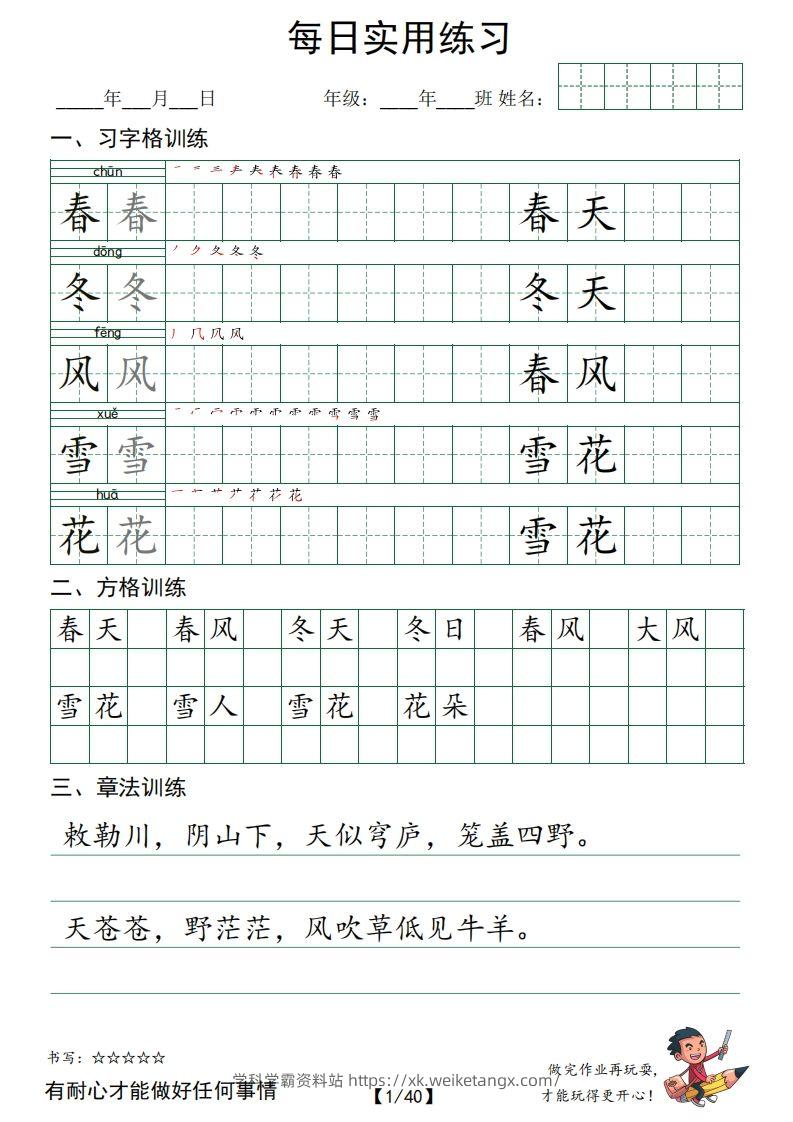 每日实用练习
_____年___月___日 年级：____年____班 姓名：
一、习字格训练
chūn
春 春 春 天
dōng
冬 冬 冬 天
fēng
风 风 春 风
xuě
雪 雪 雪 花
huā
花 花 雪 花
二、方格训练
春天 春风 冬天 冬日 春风 大风
雪花 雪人 雪花 花朵
三、章法训练
敕勒川，阴山下，天似穹庐，笼盖四野。
天苍苍，野茫茫，风吹草低见牛羊。
书写：☆☆☆☆☆
有耐心才能做好任何事情
学科学霸资料站 https://xk.weiketangx.com/
【1/40】
做完作业再玩耍，
才能玩得更开心！